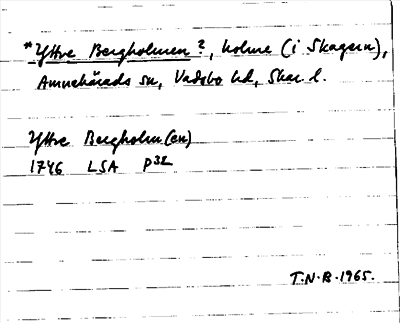 *Yttre Bergholmen?, holme (i Skagern),
Amnehärads sn, Vadsbo hd, Skar. l.
Yttre Bergholm(en)
1746 LSA P32
T.N.B. 1965.